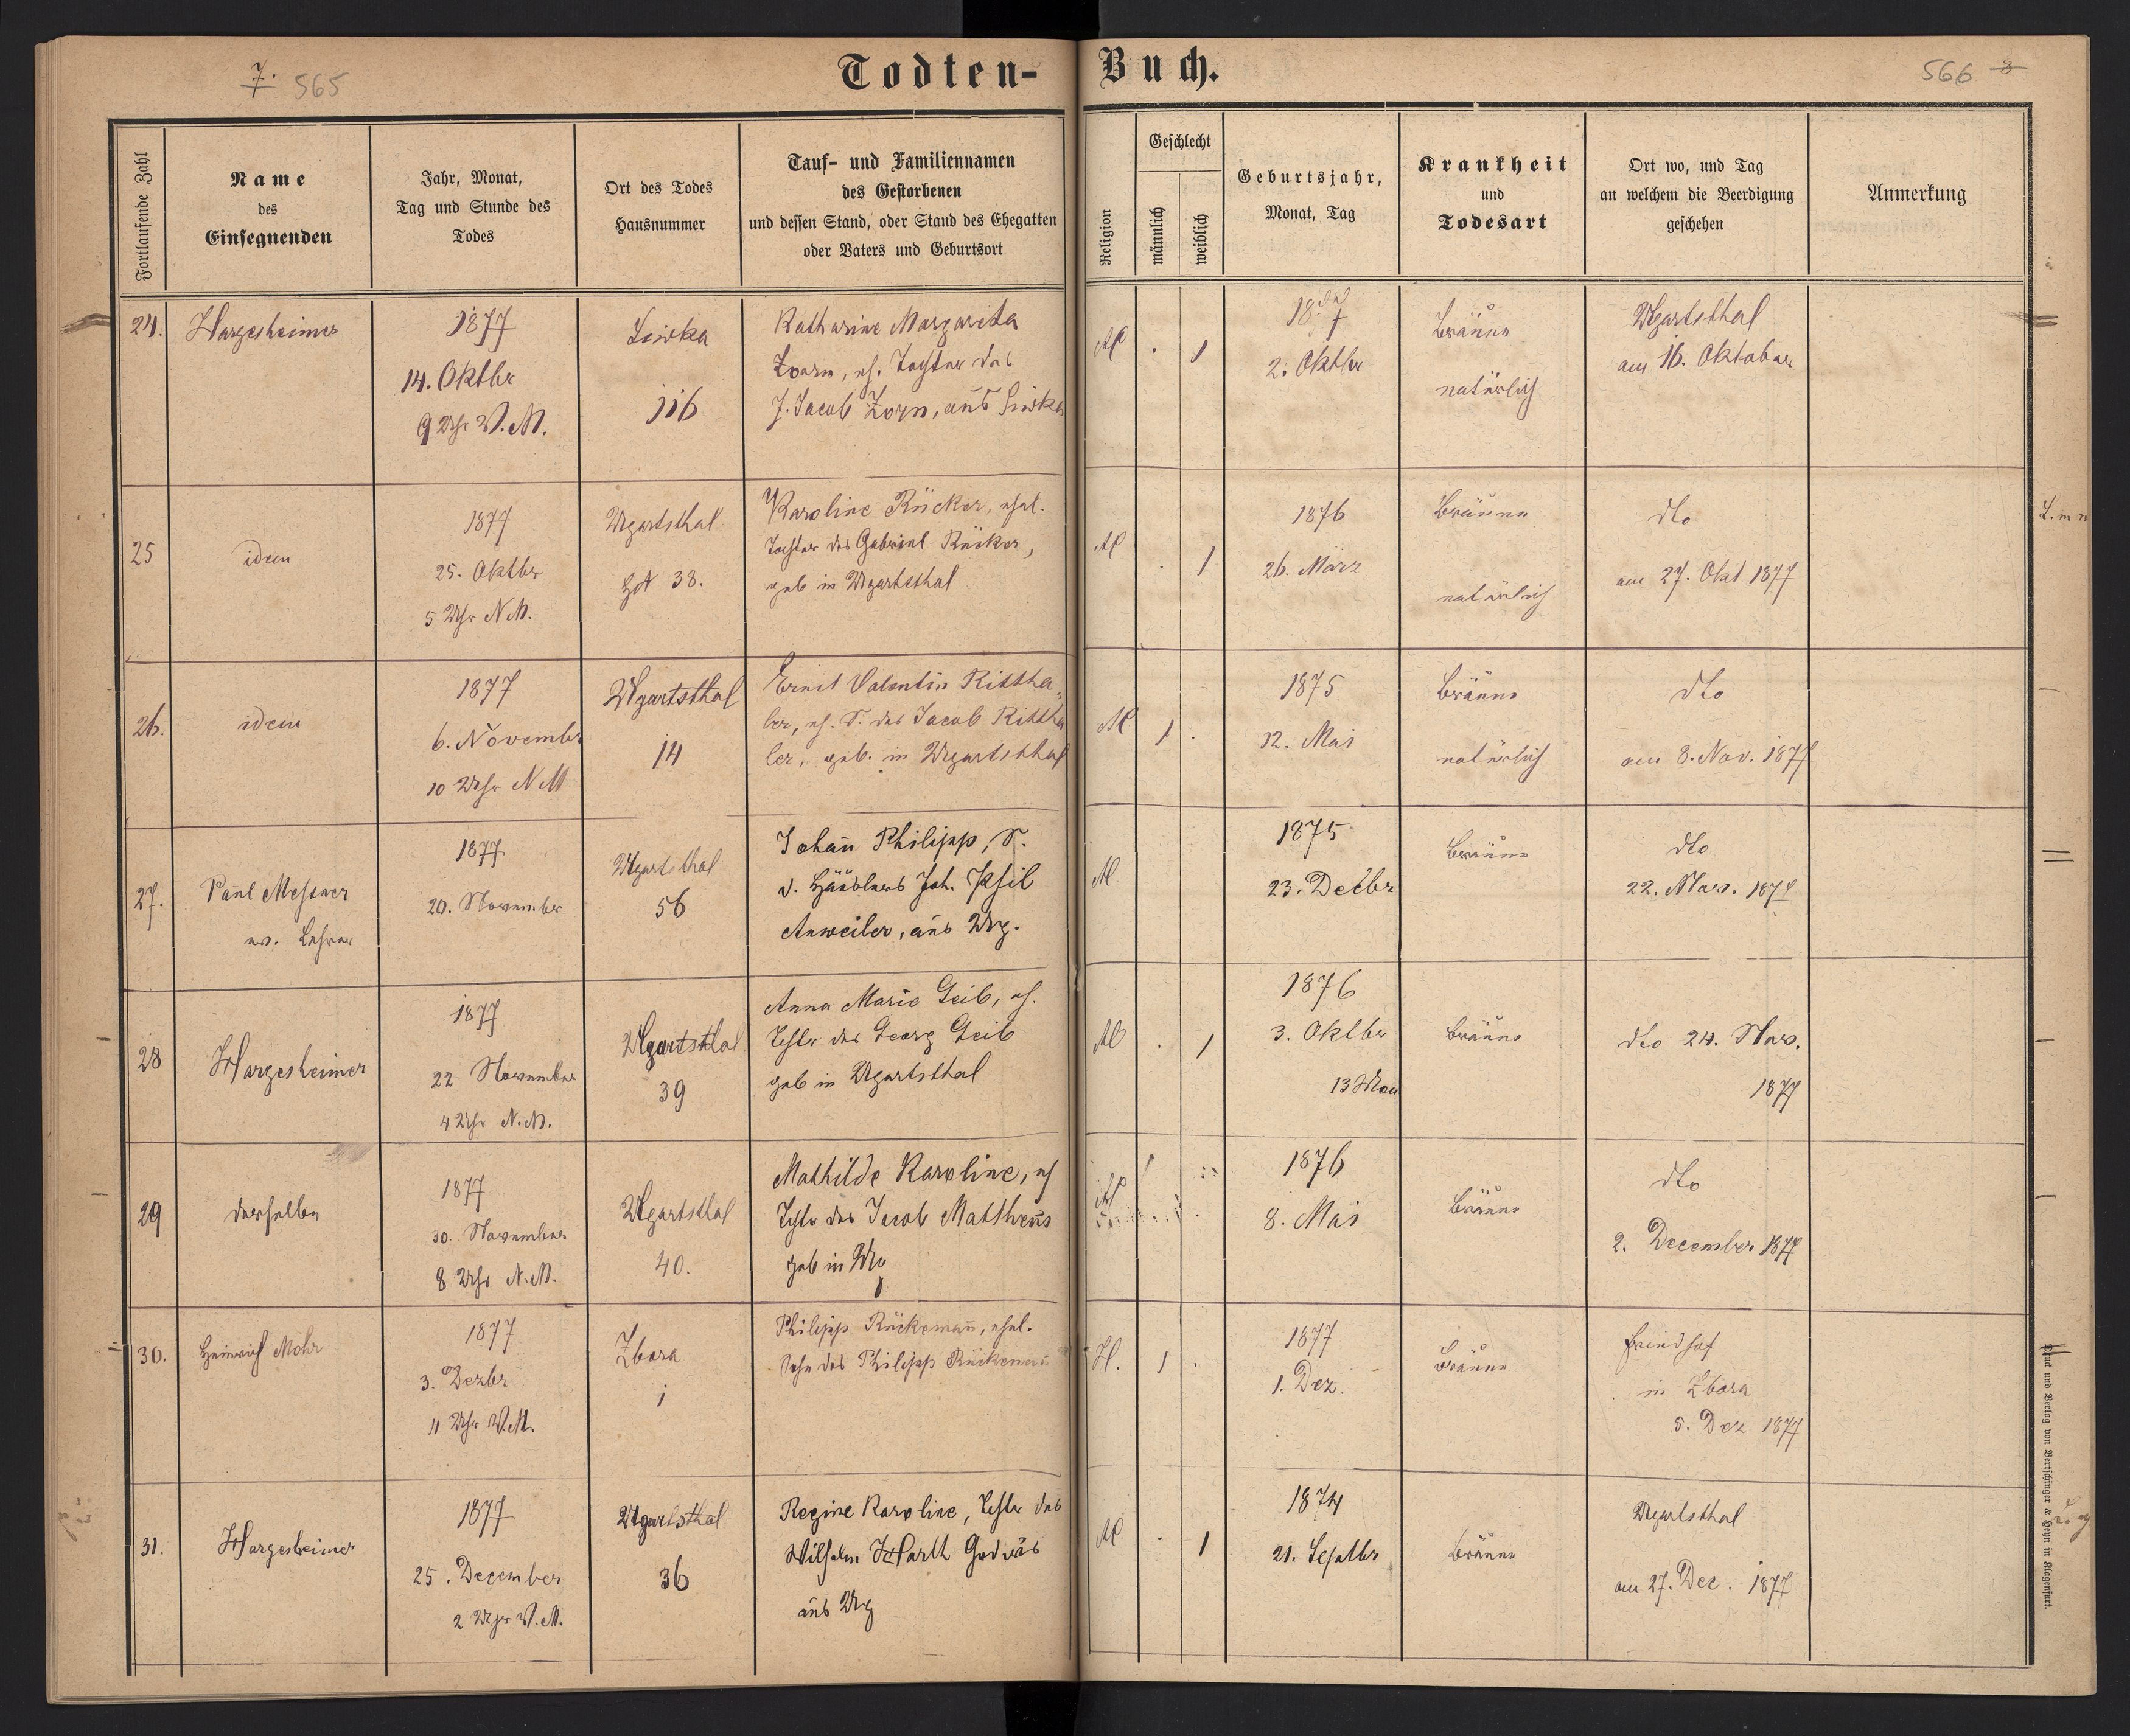 7. 565
Todten-
Buch.
566 8
Fortlaufende Zahl
Name
des
Einsegnenden
Jahr, Monat,
Tag und Stunde des
Todes
Ort des Todes
Hausnummer
Tauf- und Familiennamen
des Gestorbenen
und dessen Stand, oder Stand des Ehegatten
oder Vaters und Geburtsort
Religion
Geschlecht
männlich
weiblich
Geburtsjahr,
Monat, Tag
Krankheit
und
Todesart
Ort wo, und Tag
an welchem die Beerdigung
geschehen
Anmerkung
24.
Hargesheimer
1877
14. Oktbr
9 Uhr V.M.
Siwka
116
Katharine Margareta
Zorn, eh. Tochter des
J. Jacob Zorn, aus Siwka
AC
. 1
2. Oktbr
Bräune
natürlich
Ugartsthal
am 16. Oktober
25
idem
1877
25. Oktbr
5 Uhr N.M.
Ugartsthal
38.
Karoline Rücker, ehel.
Tochter des Gabriel Rücker,
geb in Ugartsthal
AC
. 1
1876
26. März
Bräune
natürlich
dto
am 27. Okt 1877
26.
idem
1877
6. November
10 Uhr N M
Ugartsthal
14
Ernst Valentin Rittha-
ler, eh. S. des Jacob Rittha
ler, geb. in Ugartsthal
AC
1 .
1875
12. Mai
Bräune
natürlich
dto
am 8. Nov. 1877
27.
Paul Messner
ev. Lehrer
1877
20. November
Ugartsthal
56
Johañ Philipp, S.
d. Häuslers Joh. Phil
Anweiler, aus Urg.
AC
1875
23. Decbr
Bräune
dto
22. Nov. 1877
28
Hargesheimer
1877
22 November
4 Uhr N.M.
Ugartsthal
39
Anna Marie Geib, eh.
Tochtr des Georg Geib
geb in Ugartsthal
AC
. 1
1876
3. Oktbr
13 Mon
Bräune
dto 24. Nov.
1877
29
derselbe
1877
30. November
8 Uhr N.M.
Ugartsthal
40.
Mathilde Karoline, eh
Tochtr des Jacob Mattheus
geb in Ug
AC
1876
8. Mai
Bräune
dto
2. December 1877
30.
Heinrich Mohr
1877
3. Dezbr
11 Uhr V.M.
Zbora
1
Philipp Rückemañ, ehel.
Sohn des Philipp Rückemañ
H.
1 .
1877
1. Dez.
Bräune
Friedhof
in Zbora
5. Dez 1877
31.
Hargesheimer
1877
25. December
2 Uhr V.M.
Ugartsthal
36
Regine Karoline, Tochtr des
Wilhelm Harth
aus Ug
AC
. 1
1874
21. Septbr
Bräune
Ugartsthal
am 27. Dec. 1877
Druck und Verlag von Bertschinger & Heyn in Klagenfurt.